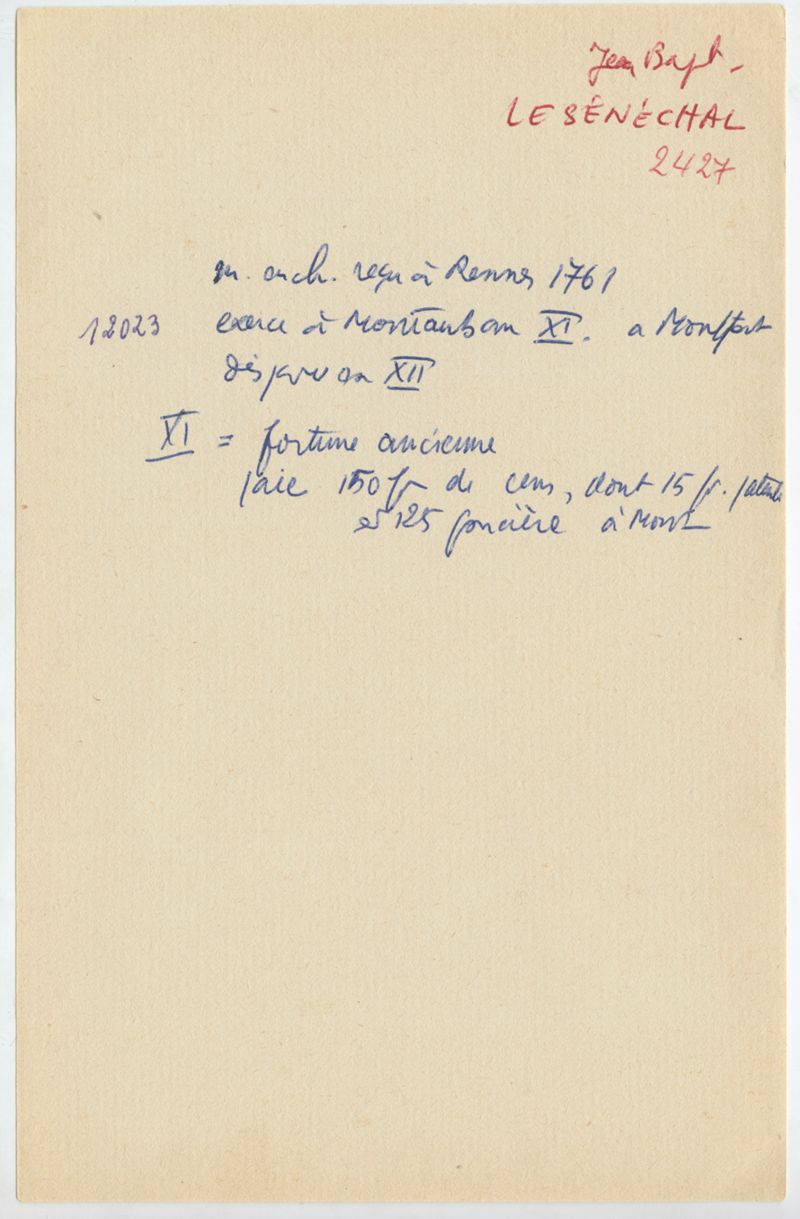 Jean Bapt.
LE SÉNÉCHAL
2427
reçu à Rennes 1761
12023 exerce à Montauban XI. a Montfort
disparu an XII
XI = fortune ancienne
paie 150 fr de cens, dont 15 fr. patente
et 125 foncière à Mont